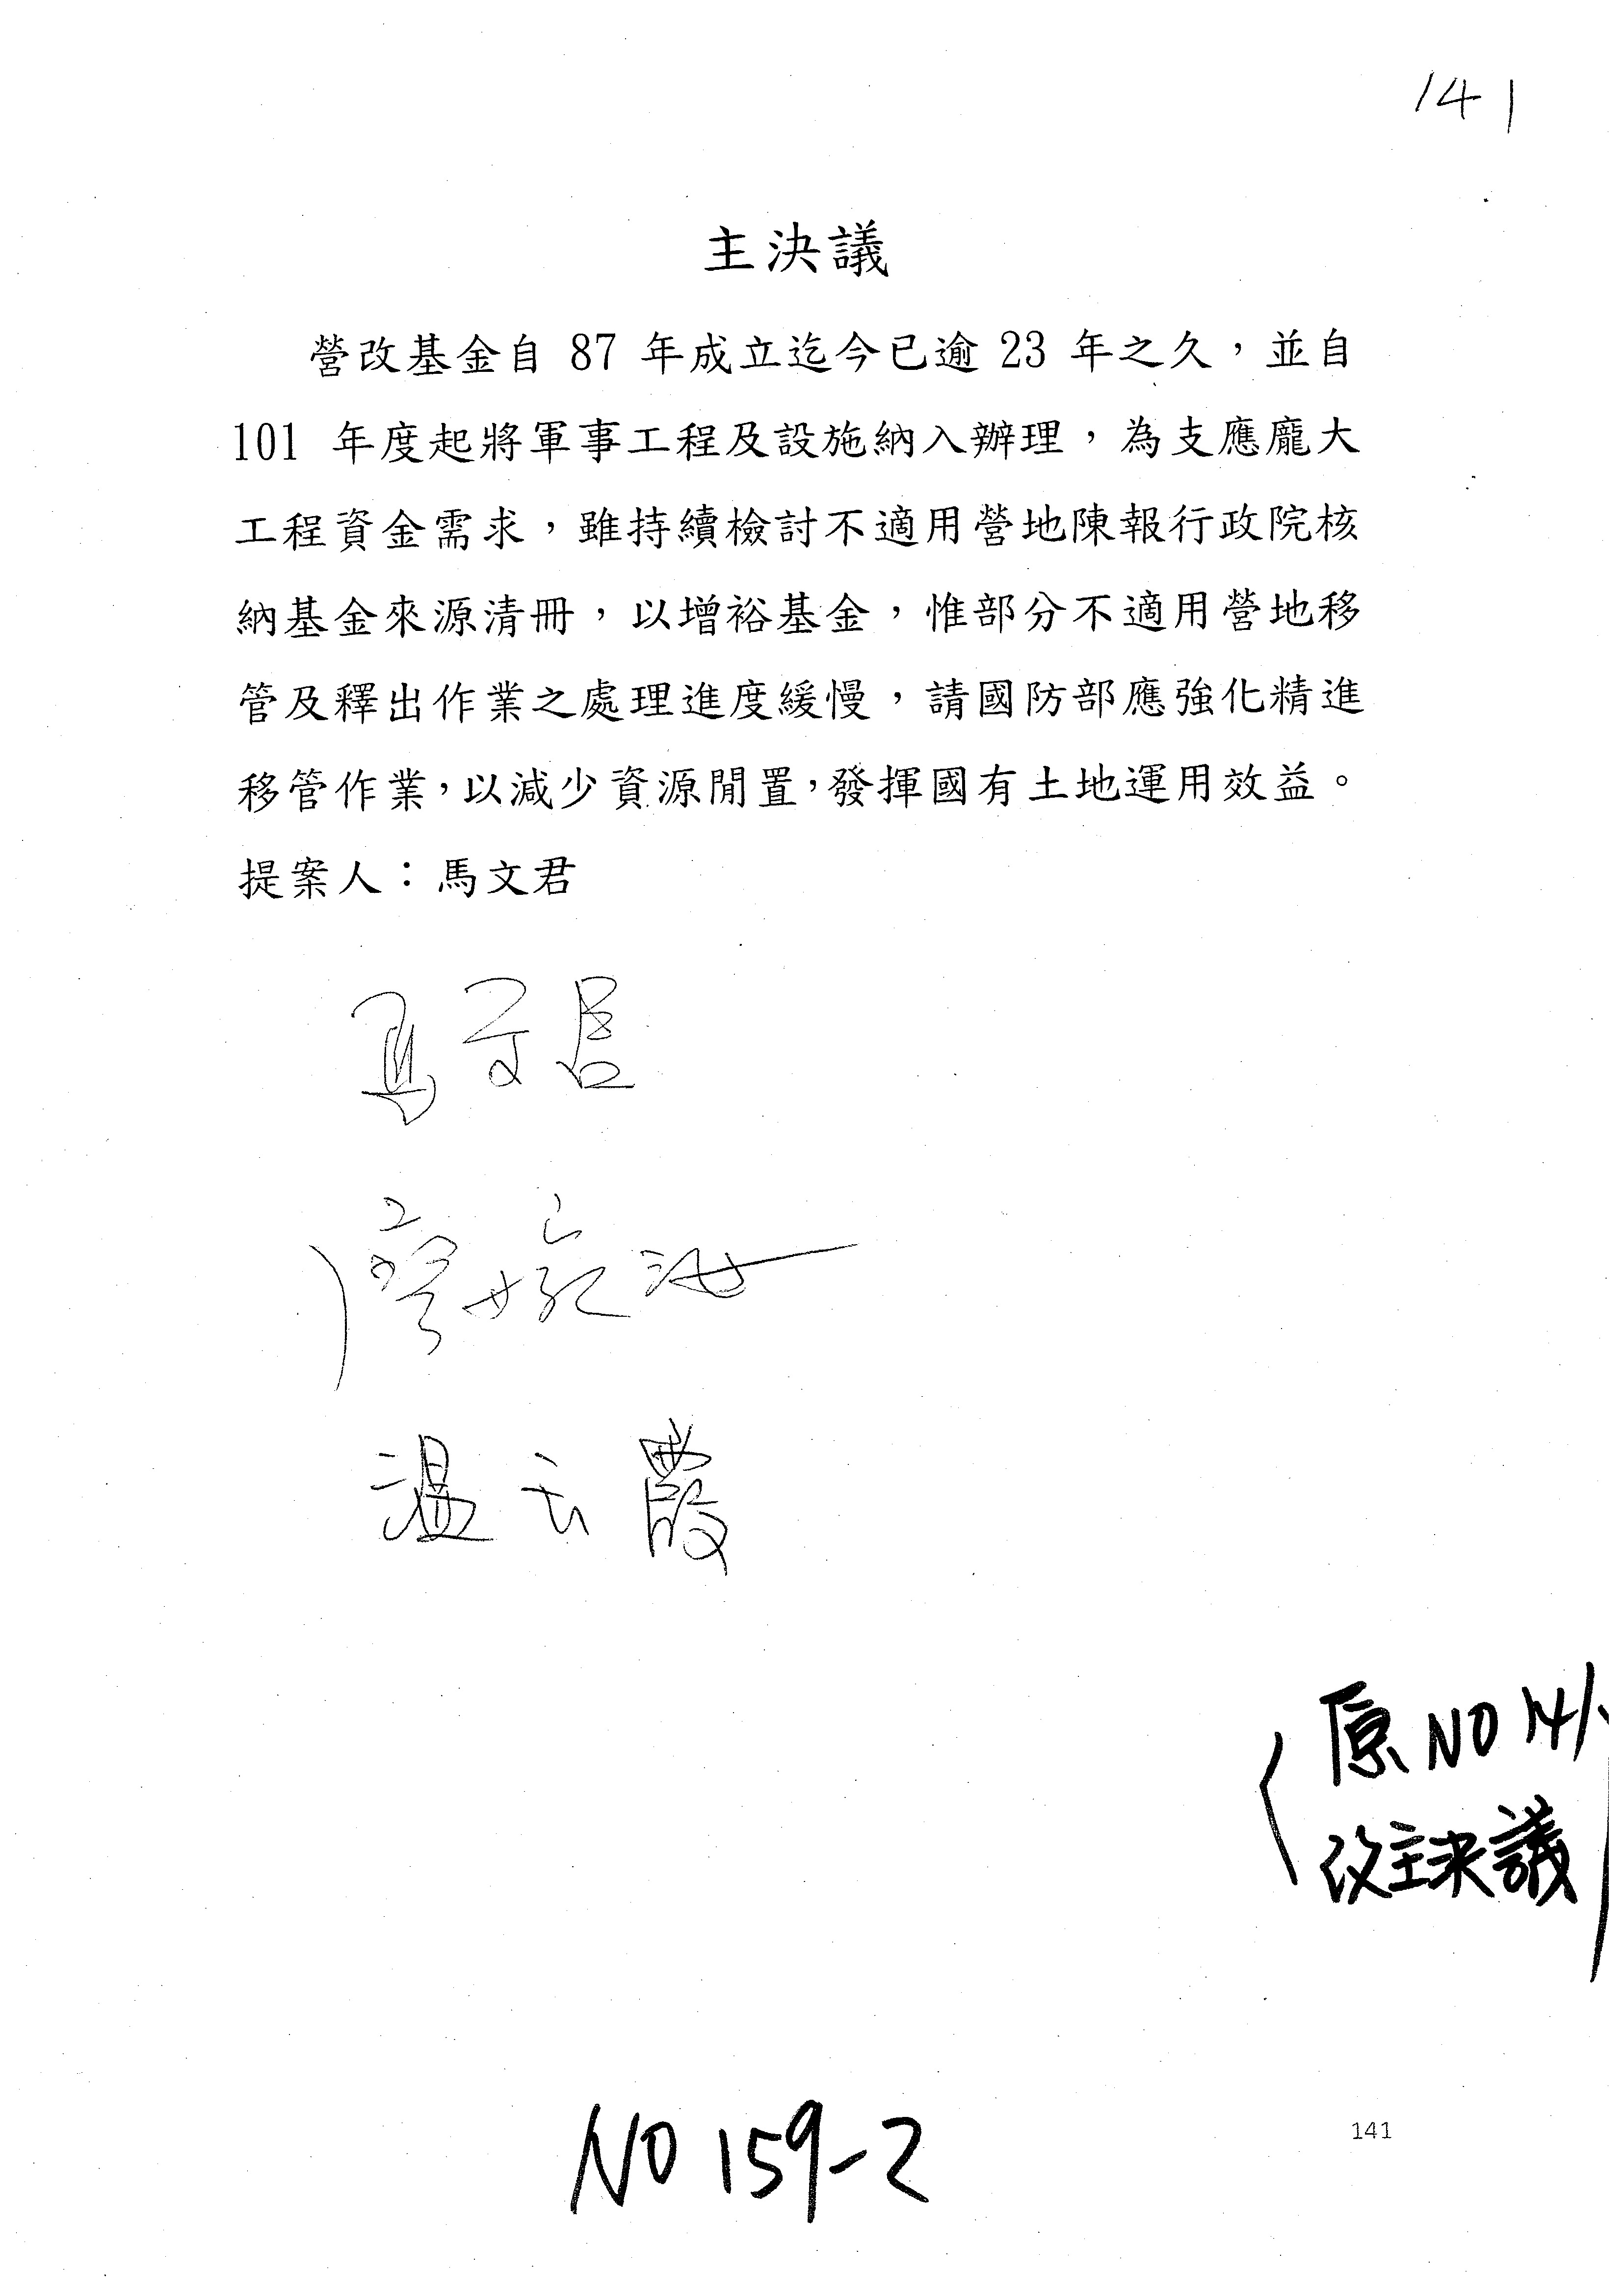 141
主決議
營改基金自 87 年成立迄今已逾 23 年之久，並自
101 年度起將軍事工程及設施納入辦理，為支應龐大
工程資金需求，雖持續檢討不適用營地陳報行政院核
納基金來源清冊，以增裕基金，惟部分不適用營地移
管及釋出作業之處理進度緩慢，請國防部應強化精進
移管作業，以減少資源閒置，發揮國有土地運用效益。
提案人：馬文君
馬文君
廖婉汝
溫玉霞
(原NO 141
改主決議)
NO 159-2
141